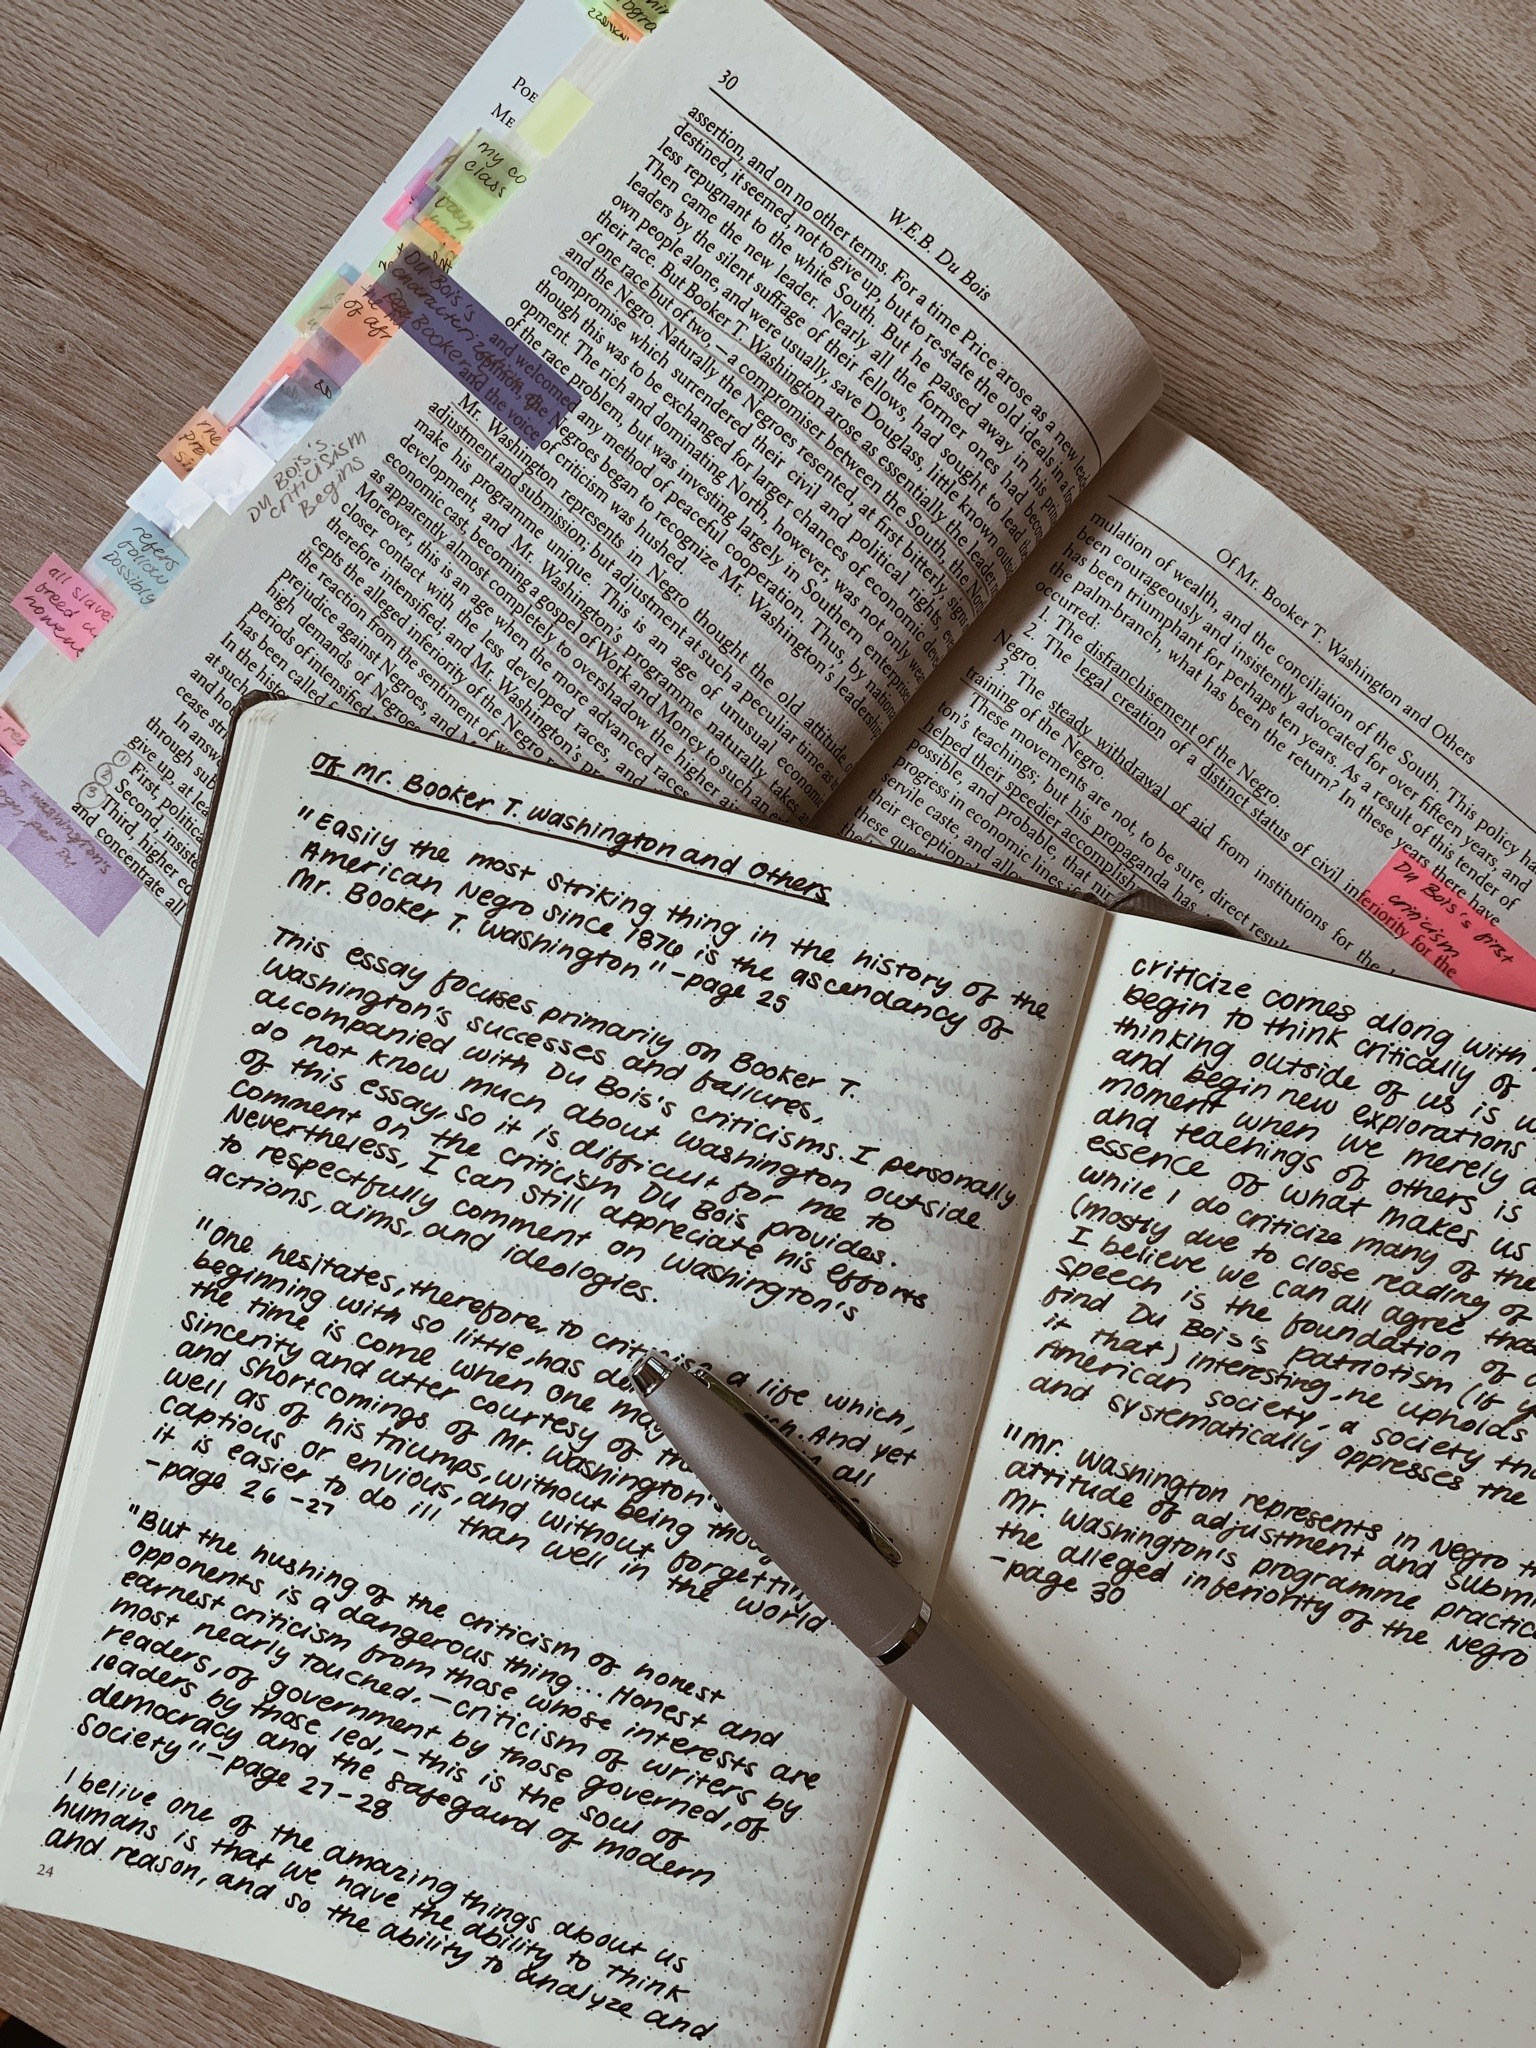 30
W.E.B. Du Bois
assertion, and on no other terms. For a time Price arose as a new
destined, it seemed, not to give up, but to re-state the old ideals in a
less repugnant to the white South. But he passed away in his
Then came the new leader. Nearly all the former ones had
leaders by the silent suffrage of their fellows, had sought to lead
own people alone, and were usually, save Douglass, little known
their race. But Booker T. Washington arose as essentially the leader
of one race but of two,—a compromiser between the South, the
and the Negro. Naturally the Negroes resented, at first bitterly, signs
compromise which surrendered their civil and political rights,
though this was to be exchanged for larger chances of economic
opment. The rich and dominating North, however, was not only
of the race problem, but was investing largely in Southern enterprises
and welcomed any method of peaceful cooperation. Thus, by national
opinion, the Negroes began to recognize Mr. Washington's leadership
and the voice of criticism was hushed.
Mr. Washington represents in Negro thought the old attitude of
adjustment and submission, but adjustment at such a peculiar time as
make his programme unique. This is an age of unusual economic
development, and Mr. Washington's programme naturally takes
economic cast, becoming a gospel of Work and Money to such an
as apparently almost completely to overshadow the higher
Moreover, this is an age when the more advanced races
closer contact with the less developed races, and
therefore intensified; and Mr. Washington's
cepts the alleged inferiority of the Negro
the reaction from the sentiment of
prejudice against Negroes, and
high demands of Negroes
periods of intensified
has been called
In the
at such
and
cease
In
through
give up, at
① First, political
② Second,
③ Third, higher
and concentrate all
my co
class
Du Bois's
Booker
Du Bois's
criticisasm
begins
refers
follow
possibly
all slave
T. Washington's
Of Mr. Booker T. Washington and Others
mulation of wealth, and the conciliation of the South. This policy
been courageously and insistently advocated for over fifteen years, and
has been triumphant for perhaps ten years. As a result of this tender of
the palm-branch, what has been the return? In these years there have
occurred:
1. The disfranchisement of the Negro.
2. The legal creation of a distinct status of civil inferiority for the
Negro.
3. The steady withdrawal of aid from institutions for the
training of the Negro.
These movements are not, to be sure, direct
ton's teachings; but his propaganda has
helped their speedier
possible, and probable, that
progress in economic lines
servile caste, and
their exceptional
these
Du Bois's first
criticism
Of Mr. Booker T. Washington and Others
"Easily the most striking thing in the history of the
American Negro since 1876 is the ascendancy of
Mr. Booker T. Washington" -page 25
This essay focuses primarily on Booker T.
Washington's successes and failures,
accompanied with Du Bois's criticisms. I personally
do not know much about Washington outside
of this essay, so it is difficult for me to
comment on the criticism Du Bois provides.
Nevertheless, I can still appreciate his efforts
to respectfully comment on Washington's
actions, aims, and ideologies.
"One hesitates, therefore, to criticise a life which,
beginning with so little, has And yet
the time is come when one may all
sincerity and utter courtesy of
and shortcomings of Mr. Washington's
well as of his triumps, without being
captious or envious, and without forgetting
it is easier to do ill than well in the world
-page 26-27
"But the hushing of the criticism of honest
opponents is a dangerous thing... Honest and
earnest criticism from those whose interests are
most nearly touched,—criticism of writers by
readers, of government by those governed, of
leaders by those led,—this is the soul of
democracy and the safegaurd of modern
society" -page 27-28
I belive one of the amazing things about us
humans is that we have the ability to think
and reason, and so the ability to analyze and
24
criticize comes along with
begin to think critically of
thinking outside of us is
and begin new explorations
moment when we merely
and teachings of others is
essence of what makes us
while I do criticize many of
(mostly due to close reading of
I believe we can all agree that
speech is the foundation of
find Du Bois's patriotism (if
it that) interesting, he upholds
American society, a society
and systematically oppresses the
"Mr. Washington represents in Negro
attitude of adjustment and
Mr. Washington's programme
the alleged inferiority of the Negro
-page 30